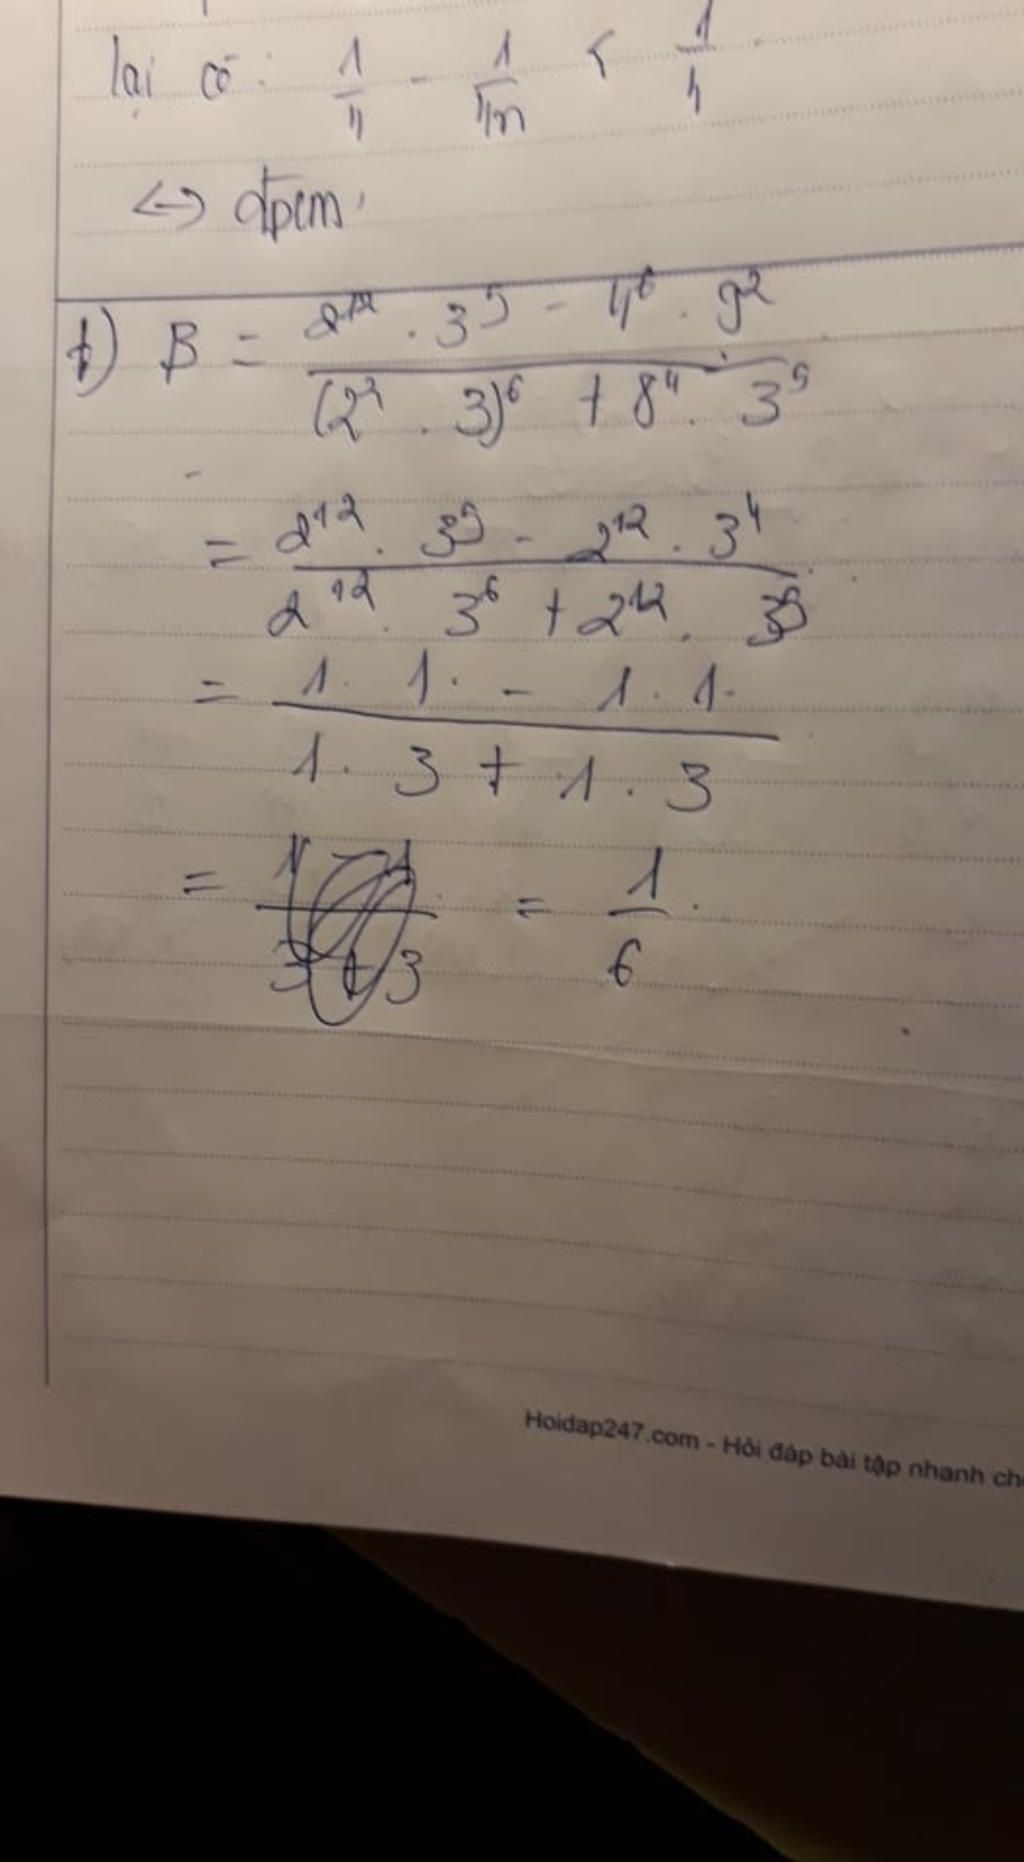 lại có: 1/4 - 1/4n < 1/4
<-> đpcm.
b) B = (2^12 . 3^5 - 4^6 . 9^2) / ((2^2 . 3)^6 + 8^4 . 3^5)
= (2^12 . 3^5 - 2^12 . 3^4) / (2^12 . 3^6 + 2^12 . 3^5)
= (1 . 1 . - 1 . 1 .) / (1 . 3 + 1 . 3)
= = 1/6 .
Hoidap247.com - Hỏi đáp bài tập nhanh